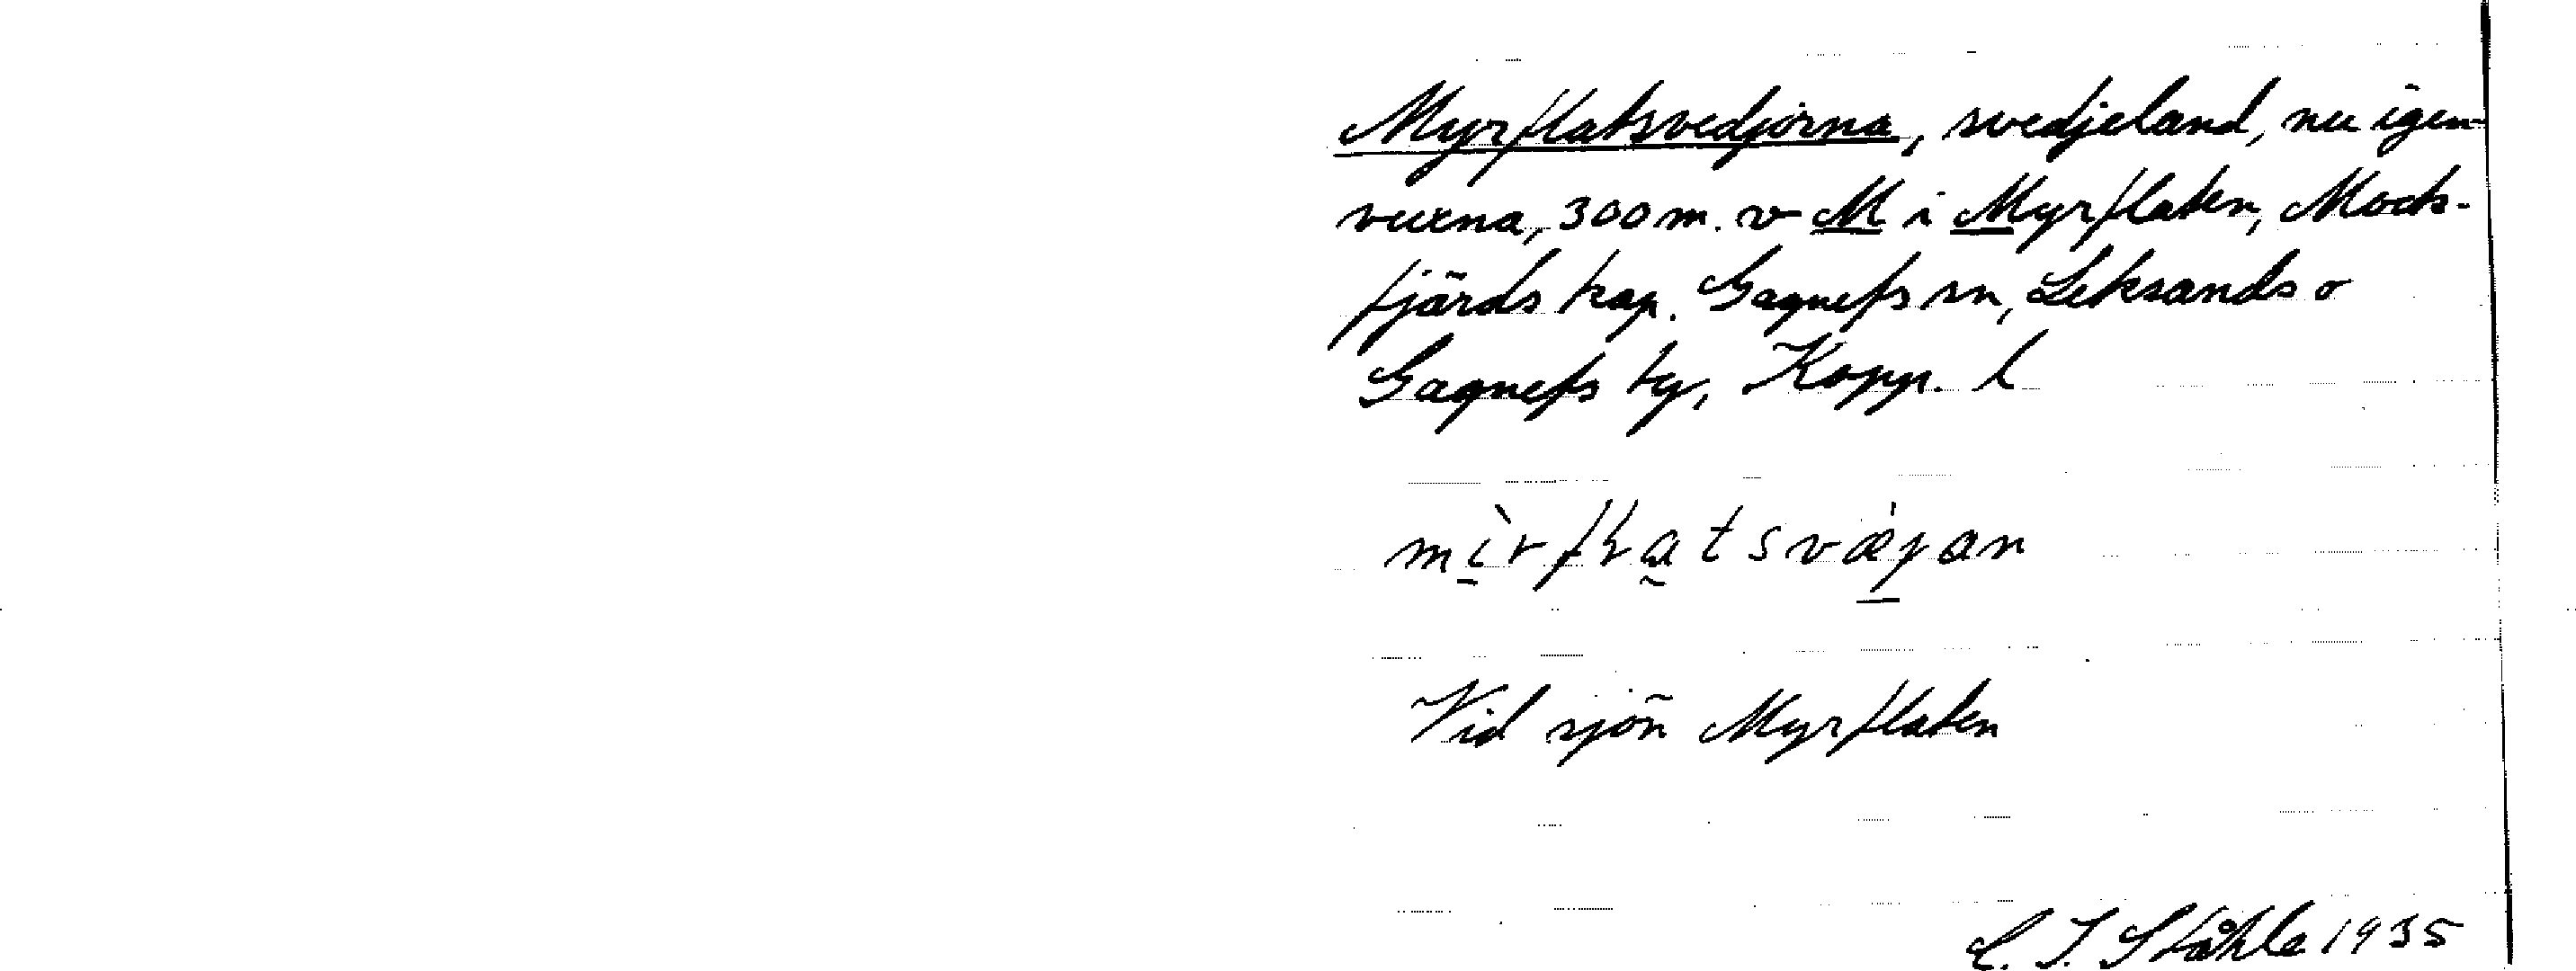 Myrflatsvedjorna, svedjeland, nu igen-
vuxna, 300 m. v M i Myrflaten, Mocks-
fjärds kap. Gagnefs sn, Leksands o
Gagnefs tg, Kopp. l
Vid sjön Myrflaten
C. I. Ståhle 1935